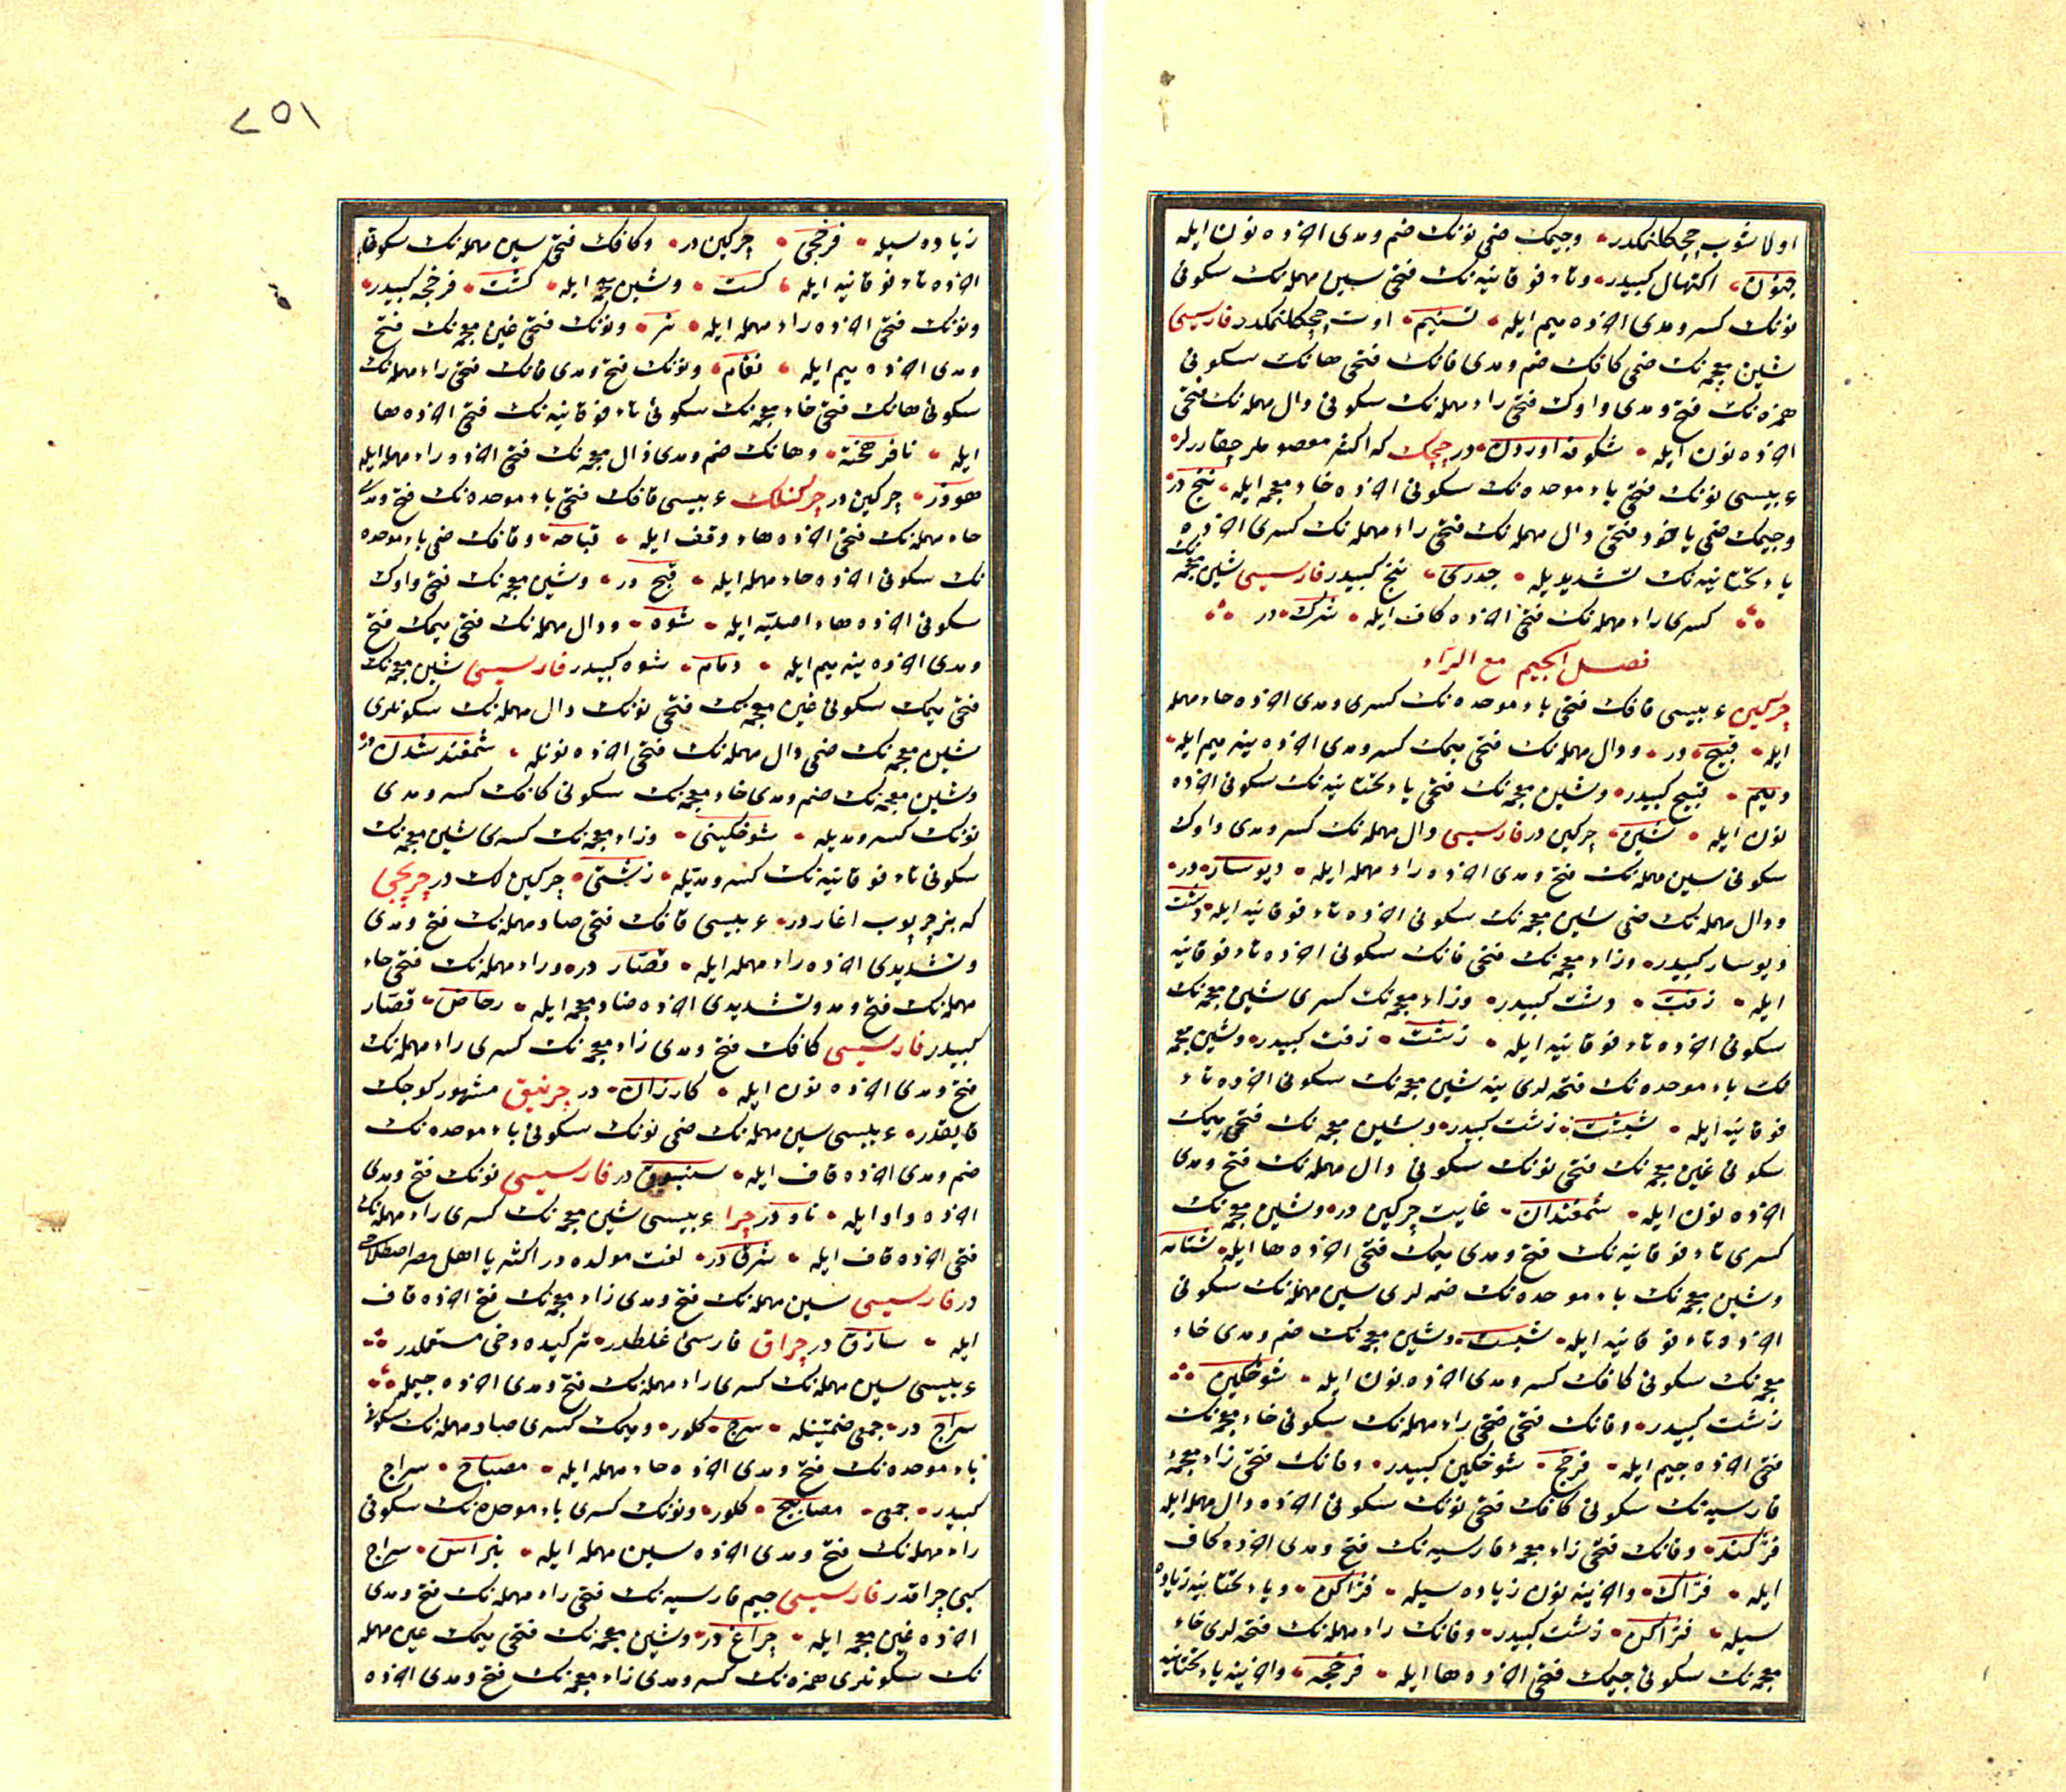 اولاشوب چچكلنمكدر وجيمك ضمى نونك ضم ومدى اخرده نون ايله
جنون اكتهال كبيدر وتاء فوقانيه نك فتحى سين مهمله نك سكونى
نونك كسر ومدى اخرده ميم ايله تسنيم اوت چچكلنمكدر فارسيسى
شين معجمه نك ضمى كافك ضم ومدى فانك فتحى هانك سكونى
همزه نك فتح ومدى واوك فتحى راء مهمله نك سكونى دال مهمله نك فتحى
اخرده نون ايله شكوفه اوردن در چچك كه اكثر معصوملر چقاررلر
عربيسى نونك فتحى باء موحده نك سكونى اخرده خاء معجمه ايله نبخ در
وجيمك ضمى ياخود فتحى دال مهمله نك فتحى راء مهمله نك كسرى اخرده
ياء تحتانيه نك تشديديله جدرى نبخ كبيدر فارسيسى شين معجمه نك
كسرى راء مهمله نك فتحى اخرده كاف ايله شرك در
فصل الجيم مع الراء
چركين عربيسى قافك فتحى باء موحده نك كسرى ومدى اخرده حاء مهمله
ايله قبيح در ودال مهمله نك فتحى ميمك كسر ومدى اخرده ينه ميم ايله
دميم قبيح كبيدر وشين معجمه نك فتحى ياء تحتانيه نك سكونى اخرده
نون ايله شين چركين در فارسيسى دال مهمله نك كسر ومدى واوك
سكونى سين مهمله نك فتح ومدى اخرده راء مهمله ايله ديوسار در
ودال مهمله نك ضمى شين معجمه نك سكونى اخرده تاء فوقانيه ايله دشت
ديوسار كبيدر وزاء معجمه نك فتحى فانك سكونى اخرده تاء فوقانيه
ايله زفت دشت كبيدر وزاء معجمه نك كسرى شين معجمه نك
سكونى اخرده تاء فوقانيه ايله زشت زفت كبيدر وشين معجمه
نك باء موحده نك فتحه لرى ينه شين معجمه نك سكونى اخرده تاء
فوقانيه ايله شبشت زشت كبيدر وشين معجمه نك فتحى ميمك
سكونى غين معجمه نك فتحى نونك سكونى دال مهمله نك فتح ومدى
اخرده نون ايله شمغندان غايت چركين در وشين معجمه نك
كسرى تاء فوقانيه نك فتح ومدى ميمك فتحى اخرده ها ايله شتامه
وشين معجمه نك باء موحده نك ضمه لرى سين مهمله نك سكونى
اخرده تاء فوقانيه ايله شبست وشين معجمه نك ضم ومدى خاء
معجمه نك سكونى كافك كسر ومدى اخرده نون ايله شوخكين
زشت كبيدر وفانك فتحى راء مهمله نك سكونى خاء معجمه نك
فتحى اخرده جيم ايله فرخج شوخكين كبيدر وفانك فتحى زاء معجمۀ
فارسيه نك سكونى كافك فتحى نونك سكونى اخرده دال مهمله ايله
فژكند وفانك فتحى زاء معجمۀ فارسيه نك فتح ومدى اخرده كاف
ايله فژاك واخرينه نون زياده سيله فژاكن وياء تحتانيه زياده
سيله فژاكين زشت كبيدر وفانك راء مهمله نك فتحه لرى خاء
معجمه نك سكونى جيمك فتحى اخرده ها ايله فرخجه واخرينه ياء تحتانيه
٢٥١
زياده سيله فرخجى چركين در وكافك فتحى سين مهمله نك سكونى
اخرده تاء فوقانيه ايله كست وشين معجمه ايله كشت فرخجه كبيدر
ونونك فتحى اخرده راء مهمله ايله نر ونونك فتحى غين معجمه نك فتح
ومدى اخرده ميم ايله نغام ونونك فتح ومدى فانك فتحى راء مهمله نك
سكونى هانك فتحى خاء معجمه نك سكونى تاء فوقانيه نك فتحى اخرده ها
ايله نافرهخته وهانك ضم ومدى ذال معجمه نك فتحى اخرده راء مهمله ايله
هوذر چركين در چركنلك عربيسى قافك فتحى باء موحده نك فتح ومدى
حاء مهمله نك فتحى اخرده هاء وقف ايله قباحه وقافك ضمى باء موحده
نك سكونى اخرده حاء مهمله ايله قبح در وشين معجمه نك فتحى واوك
سكونى اخرده هاء اصليه ايله شوه ودال مهمله نك فتحى ميمك فتح
ومدى اخرده ينه ميم ايله دمام شوه كبيدر فارسيسى شين معجمه نك
فتحى ميمك سكونى غين معجمه نك فتحى نونك دال مهمله نك سكونلرى
شين معجمه نك ضمى دال مهمله نك فتحى اخرده نونله شمغند شدن در
وشين معجمه نك ضم ومدى خاء معجمه نك سكونى كافك كسر ومدى
نونك كسر ومديله شوخكينى وزاء معجمه نك كسرى شين معجمه نك
سكونى تاء فوقانيه نك كسر ومديله زشتى چركين لك در چرپيجى
كه بز چرپوب اغاردر عربيسى قافك فتحى صاد مهمله نك فتح ومدى
وتشديدى اخرده راء مهمله ايله قصار در وراء مهمله نك فتحى حاء
مهمله نك فتح ومد وتشديدى اخرده ضاد معجمه ايله رحاض قصار
كبيدر فارسيسى كافك فتح ومدى زاء معجمه نك كسرى راء مهمله نك
فتح ومدى اخرده نون ايله كارزان در چرنيق مشهور كوچك
قايقدر عربيسى سين مهمله نك ضمى نونك سكونى باء موحده نك
ضم ومدى اخرده قاف ايله سنبوق در فارسيسى نونك فتح ومدى
اخرده واو ايله ناو در چرا عربيسى شين معجمه نك كسرى راء مهمله نك
فتحى اخرده قاف ايله شرق در لغت مولده در اكثريا اهل مصر اصطلاحى
در فارسيسى سين مهمله نك فتح ومدى زاء معجمه نك فتح اخرده قاف
ايله سازق در چراق فارسى غلطدر تركيده دخى مستعملدر
عربيسى سين مهمله نك كسرى راء مهمله نك فتح ومدى اخرده جيمله
سراج در جمعى ضمتينله سرج كلور وميمك كسرى صاد مهمله نك سكونى
باء موحده نك فتح ومدى اخرده حاء مهمله ايله مصباح سراج
كبيدر جمعى مصابيح كلور ونونك كسرى باء موحده نك سكونى
راء مهمله نك فتح ومدى اخرده سين مهمله ايله نبراس سراج
كبى چراقدر فارسيسى جيم فارسيه نك فتحى راء مهمله نك فتح ومدى
اخرده غين معجمه ايله چراغ در وشين معجمه نك فتحى ميمك عين مهمله
نك سكونلرى همزه نك كسر ومدى زاء معجمه نك فتح ومدى اخرده